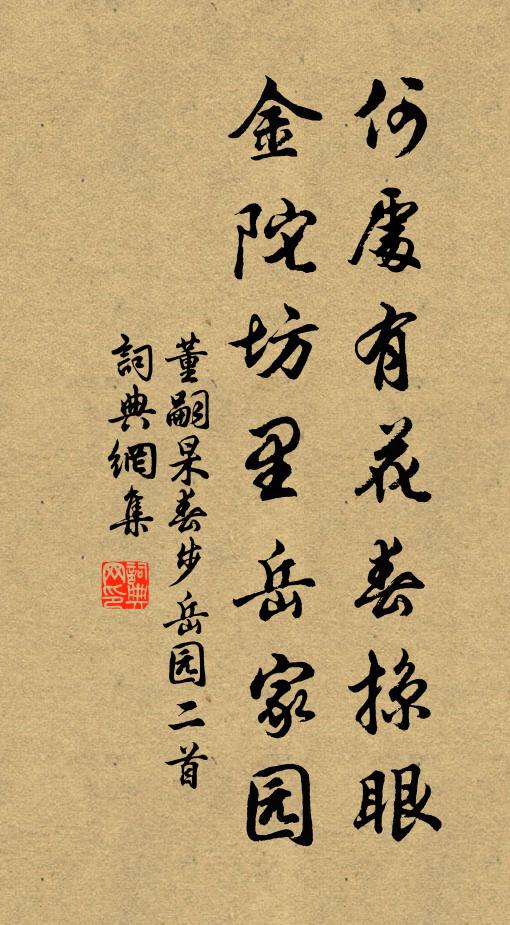 何處有花春掠眼
金陀坊里岳家园
董嗣杲春步岳园二首
詞典網集
詞典网印